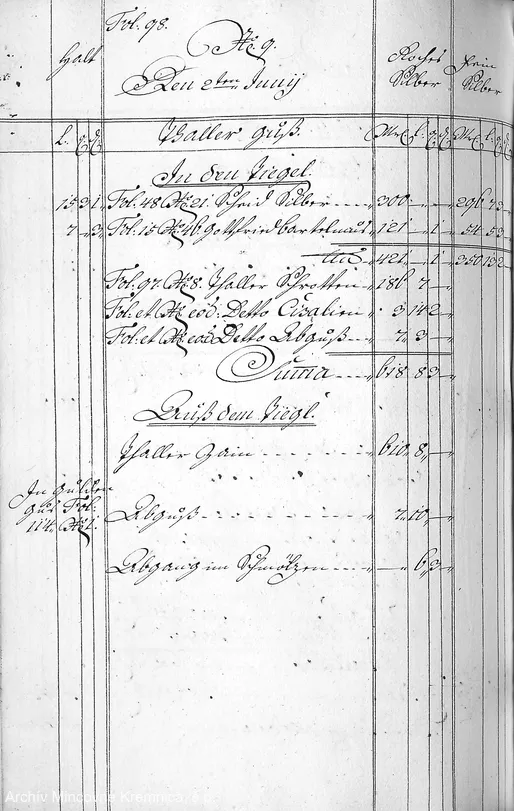 Fol. 98.
No. 9.
Halt
Den 2ten Junÿ
Roches Silber
Fein Silber
L. q d
Thaller guß.
Mrc l q d Mrc l q d
In den Tiegel.
15 3 1 Fol. 48 No. 21 Scheid Silber 300 296
7 3 Fol. 15 No. 46 Gottfried 121 1 54 5 3
421 1 350
Fol. 97. No. 8. Thaller Schrotten 186 7
Fol: et No. eod: Detto Cisalien 3 14 2
Fol: et No. eod Detto Abguß 7 3
Summa 618 8 3
Auß dem Tiegl.
Thaller Zain 610 8
In Gulden
guß Fol:
114. No. 1.
Abguß 7 10
Abgang im Schmölzen 6 3
Archív Mincovne Kremnica